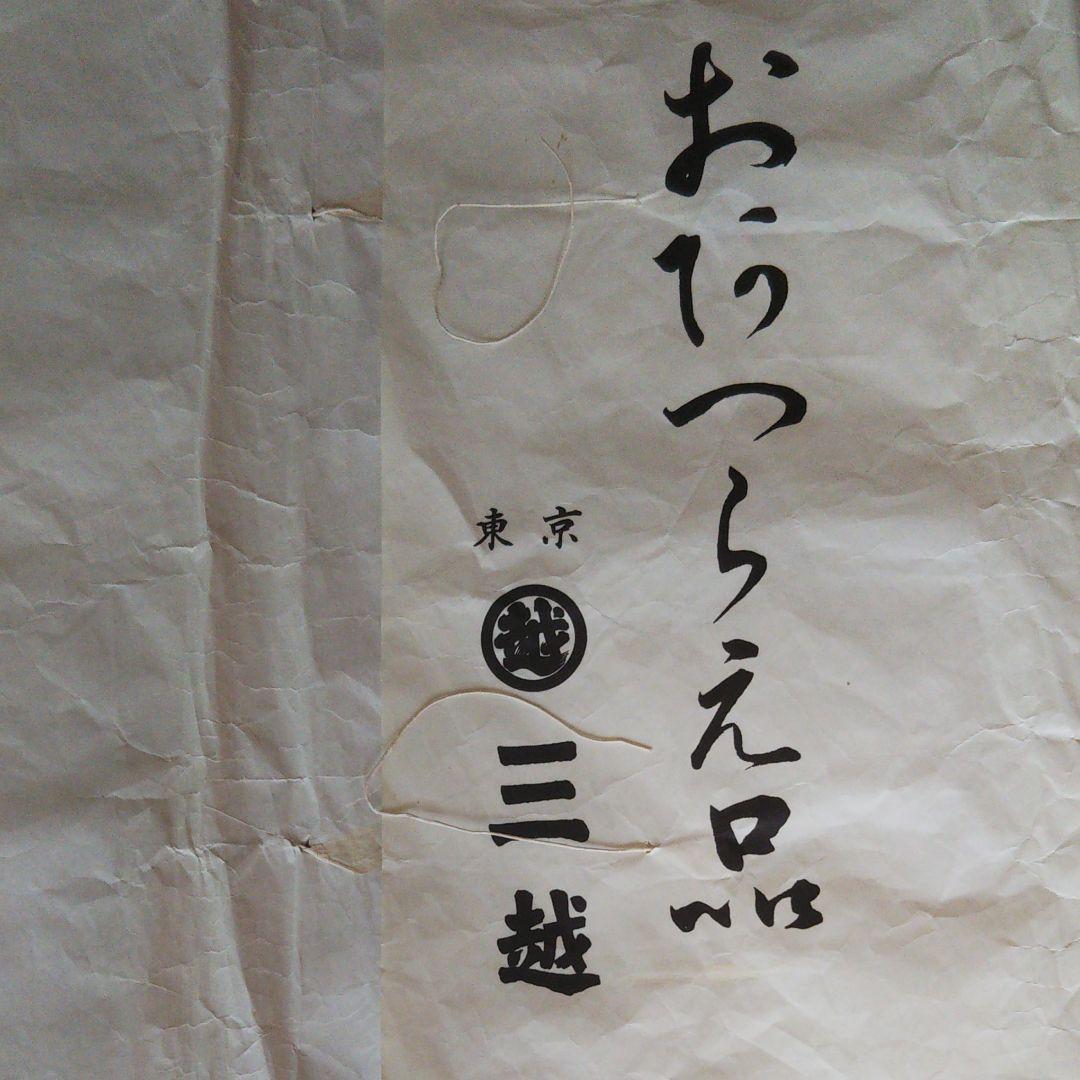 おあつらえ品
東京
越
三越